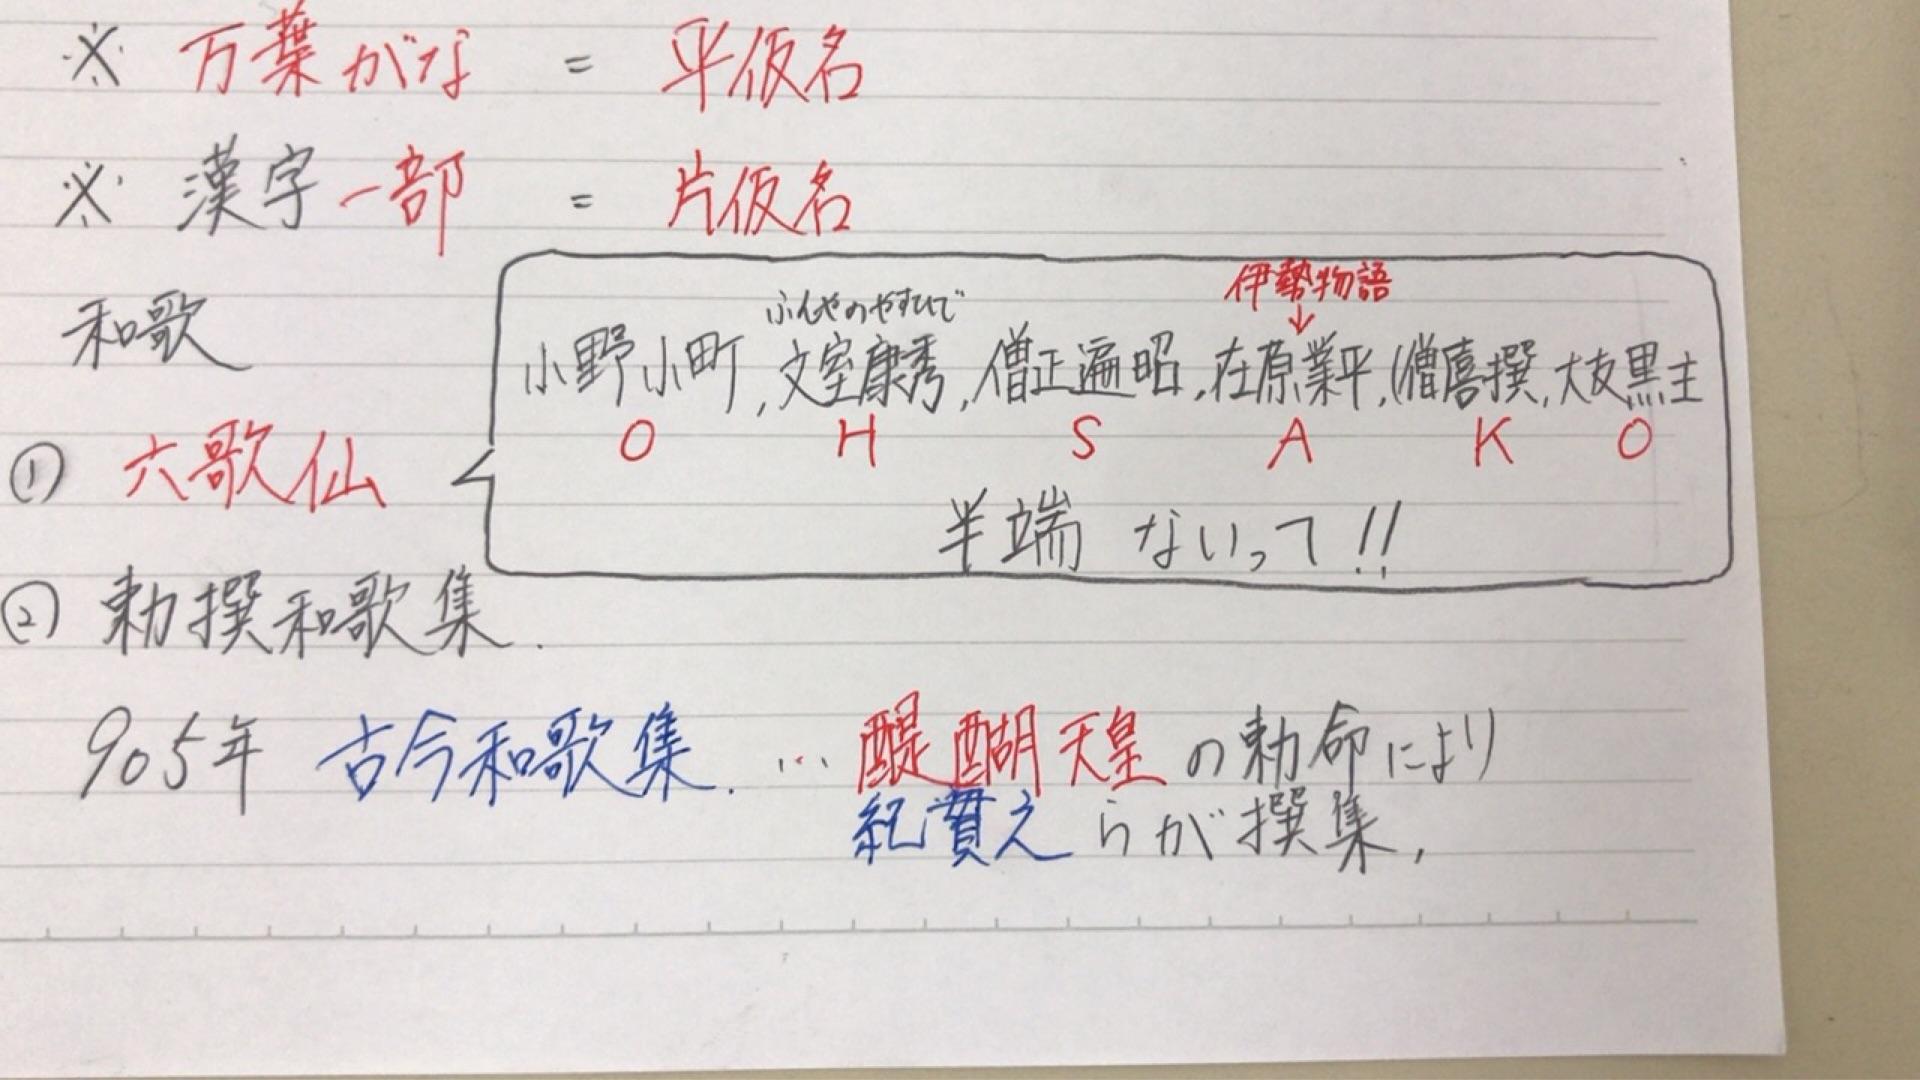 ※ 万葉がな = 平仮名
※ 漢字一部 = 片仮名
和歌
伊勢物語
↓
ふんやのやすひで
小野小町, 文室康秀, 僧正遍昭, 在原業平, (僧喜撰, 大友黒主
O H S A K O
① 六歌仙
半端 ないって!!
② 勅撰和歌集.
905年 古今和歌集. … 醍醐天皇の勅命により
紀貫之らが撰集,